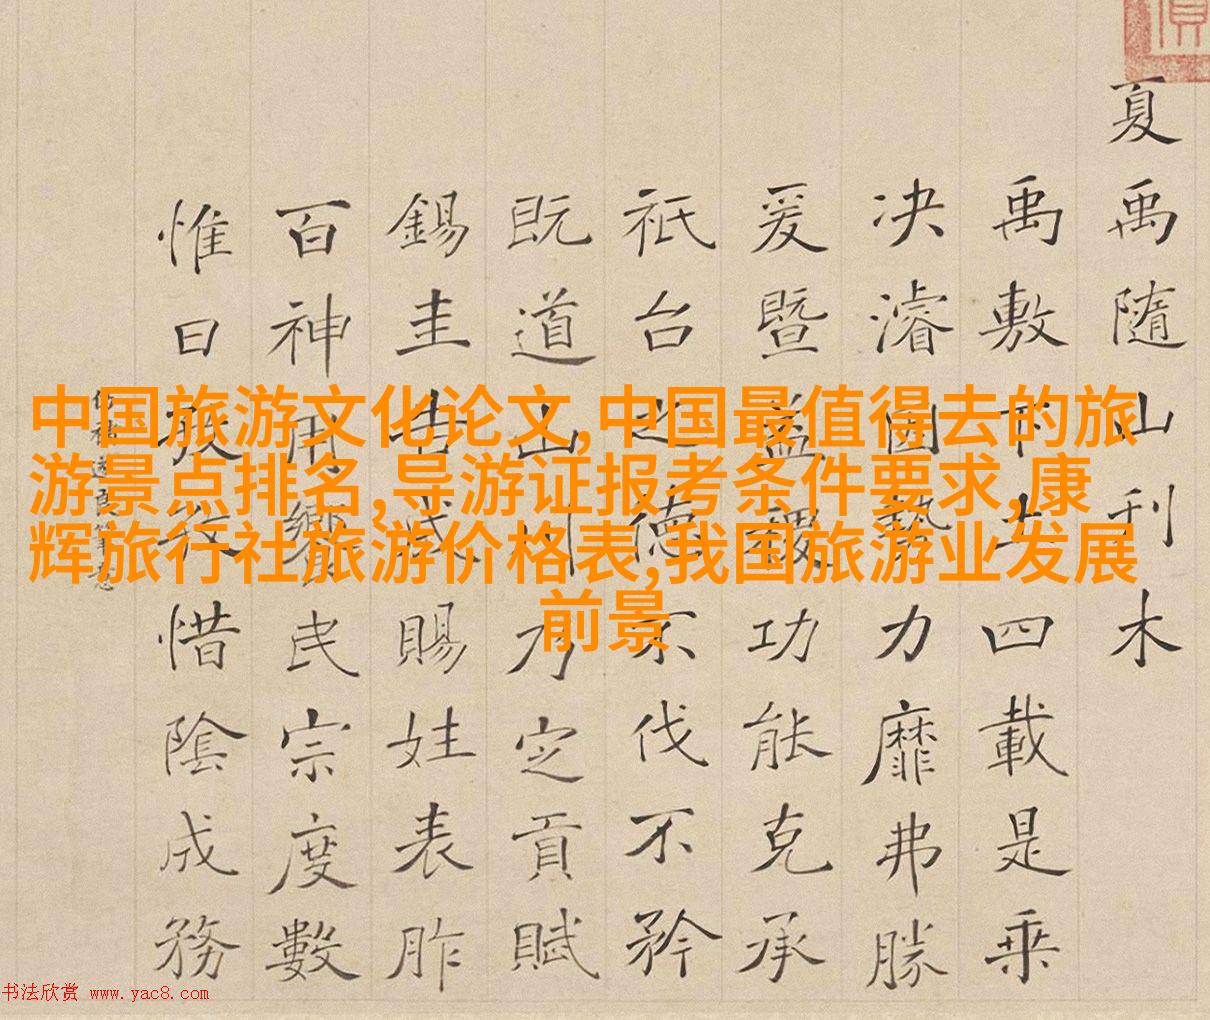 中国旅游文化论文,中国最值得去的旅
游景点排名,导游证报考条件要求,康
辉旅行社旅游价格表,我国旅游业发展
前景
夏禹隨山利木
禹敷下土四載是乘
决濬因勢力靡弗勝
爰暨益稷功能克承
祇台德不伐不矜
既道山川乃定貢賦
錫圭告成賜姓表胙
百神用饗民宗度數
惟日孜孜惜陰成務
书法欣赏 www.yac8.com